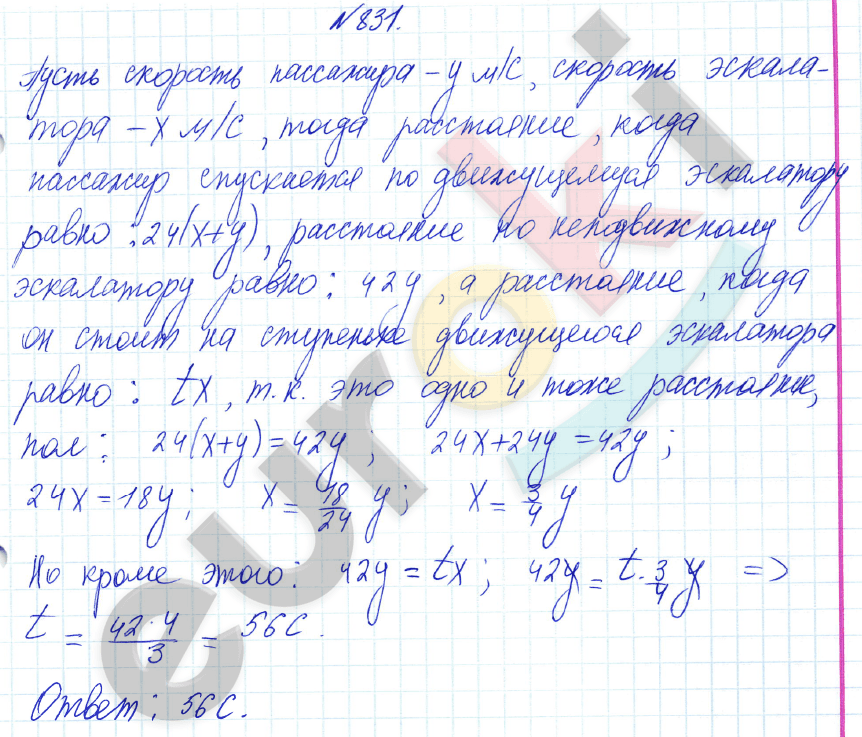 №831.
Пусть скорость пассажира – y м/с, скорость эскала-
тора – x м/с, тогда расстояние, когда
пассажир спускается по движущемуся эскалатору
равно: 24(x+y), расстояние по неподвижному
эскалатору равно: 42y, а расстояние, когда
он стоит на ступеньке движущегося эскалатора
равно: tx, т.к. это одно и тоже расстояние,
пол: 24(x+y)=42y; 24x+24y=42y;
24x=18y; x=18/24 y; x=3/4 y
Но кроме этого: 42y=tx; 42y=t·3/4 y =>
t = 42·4/3 = 56с.
Ответ: 56с.
euroki